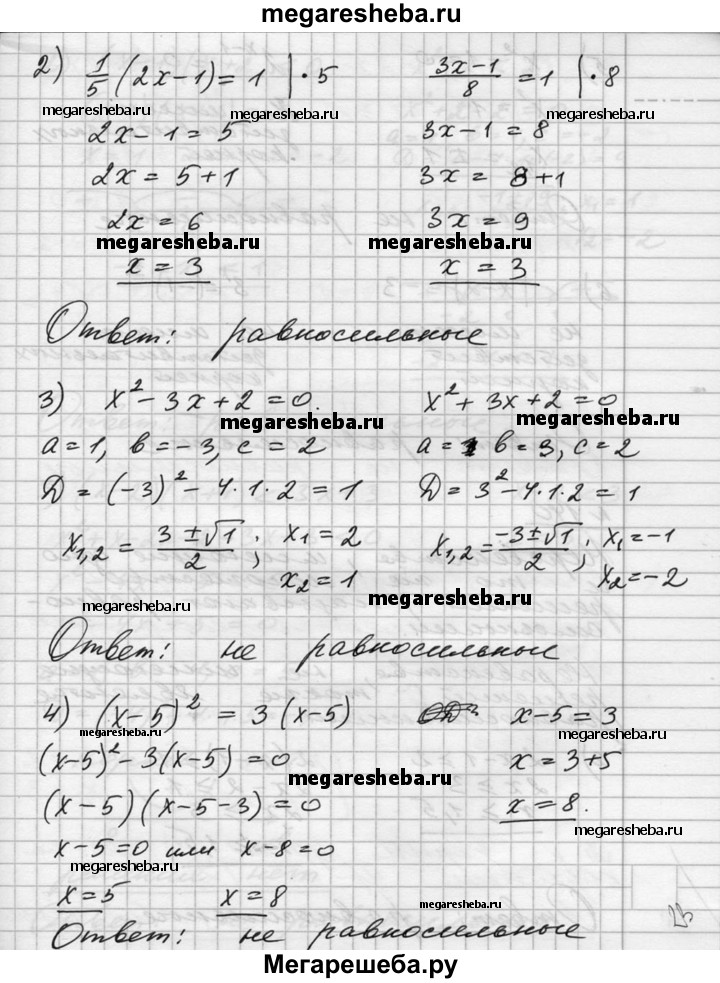 megaresheba.ru
2) 1/5 (2x-1) = 1 | · 5      (3x-1)/8 = 1 | · 8
megaresheba.ru      megaresheba.ru
2x - 1 = 5      3x - 1 = 8
2x = 5 + 1      3x = 8 + 1
2x = 6      3x = 9
megaresheba.ru      megaresheba.ru
x = 3      x = 3
Ответ: равносильные
3) x² - 3x + 2 = 0.      x² + 3x + 2 = 0
megaresheba.ru      megaresheba.ru
a = 1, b = -3, c = 2      a = 1 b = 3, c = 2
D = (-3)² - 4·1·2 = 1      D = 3² - 4·1·2 = 1
x1,2 = (3 ± √1)/2; x1 = 2      x1,2 = (-3 ± √1)/2; x1 = -1
x2 = 1      x2 = -2
megaresheba.ru      megaresheba.ru
Ответ: не равносильные
4) (x-5)² = 3(x-5)      x - 5 = 3
megaresheba.ru
(x-5)² - 3(x-5) = 0      x = 3 + 5
megaresheba.ru
(x-5)(x-5-3) = 0      x = 8.
megaresheba.ru
x - 5 = 0 или x - 8 = 0
megaresheba.ru
x = 5      x = 8
megaresheba.ru
Ответ: не равносильные
megaresheba.ru
Мегарешеба.ру